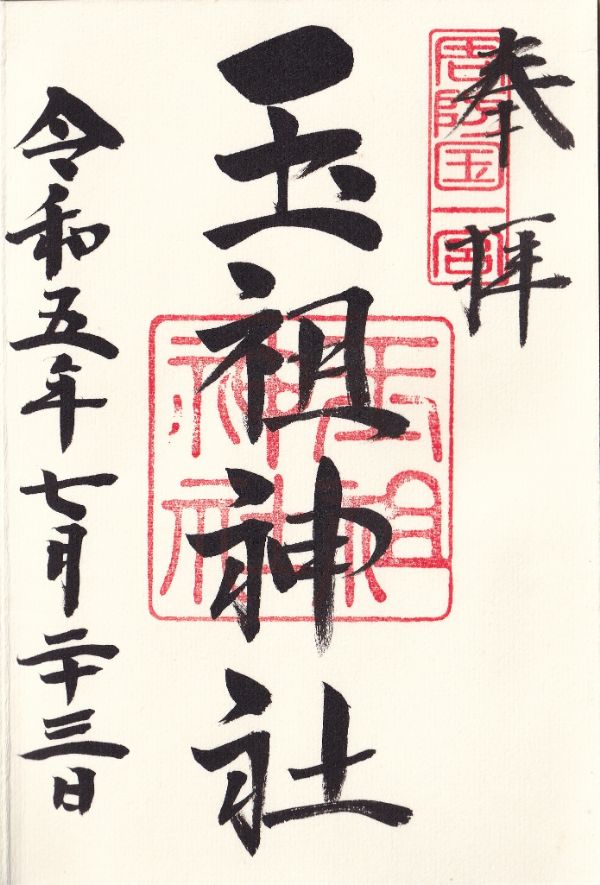 奉拝
周防国一宮
玉祖神社
玉祖神社
令和五年七月二十三日